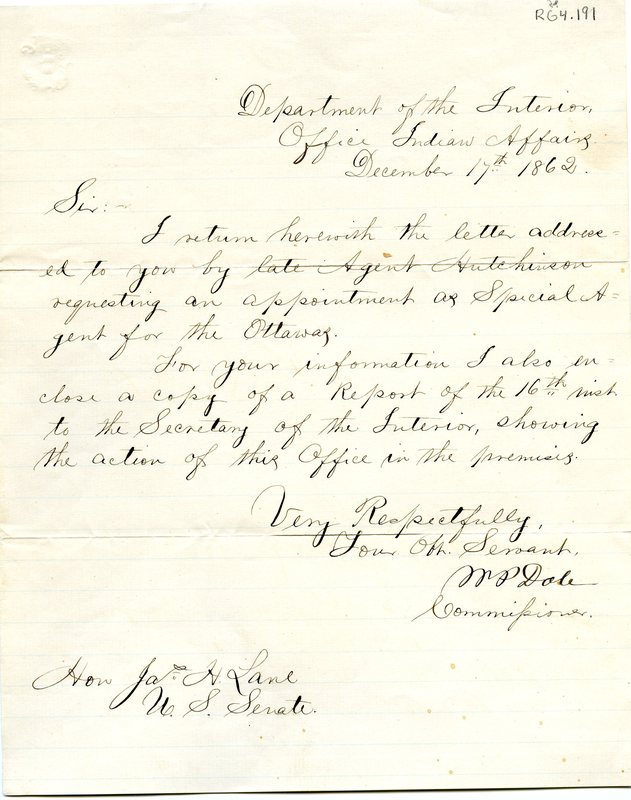 RG4.191
Department of the Interior,
Office Indian Affairs.
December 17th 1862.
Sir:~
I return herewith the letter address=
ed to you by late Agent Hutchinson
requesting an appointment as Special A=
gent for the Ottawas.
For your information I also en=
close a copy of a Report of the 16th inst
to the Secretary of the Interior, showing
the action of this Office in the premises.
Very Respectfully,
Your Obt. Servant,
Wm P Dole
Commissioner.
Hon Jas. H. Lane
U. S. Senate.